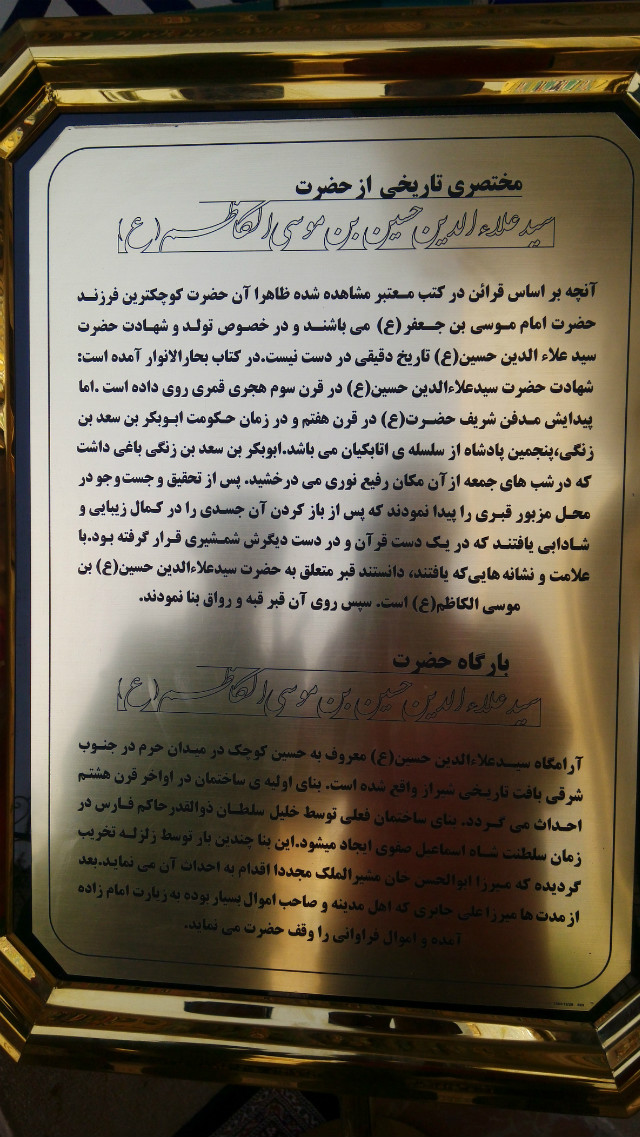 مختصری تاریخی از حضرت
سید علاء الدین حسین بن موسی الکاظم (ع)
آنچه بر اساس قرائن در کتب معتبر مشاهده شده ظاهرا آن حضرت کوچکترین فرزند
حضرت امام موسی بن جعفر(ع) می باشند و در خصوص تولد و شهادت حضرت
سید علاء الدین حسین(ع) تاریخ دقیقی در دست نیست.در کتاب بحارالانوار آمده است:
شهادت حضرت سیدعلاءالدین حسین(ع) در قرن سوم هجری قمری روی داده است .اما
پیدایش مدفن شریف حضرت(ع) در قرن هفتم و در زمان حکومت ابوبکر بن سعد بن
زنگی،پنجمین پادشاه از سلسله ی اتابکیان می باشد.ابوبکر بن سعد بن زنگی باغی داشت
که درشب های جمعه ازآن مکان رفیع نوری می درخشید. پس از تحقیق و جست وجو در
محل مزبور قبری را پیدا نمودند که پس از باز کردن آن جسدی را در کمال زیبایی و
شادابی یافتند که در یک دست قرآن و در دست دیگرش شمشیری قرار گرفته بود.با
علامت و نشانه هایی‌که یافتند، دانستند قبر متعلق به حضرت سیدعلاءالدین حسین(ع) بن
موسی الکاظم(ع) است. سپس روی آن قبر قبه و رواق بنا نمودند.
بارگاه حضرت
سید علاء الدین حسین بن موسی الکاظم (ع)
آرامگاه سیدعلاءالدین حسین(ع) معروف به حسین کوچک در میدان حرم در جنوب
شرقی بافت تاریخی شیراز واقع شده است. بنای اولیه ی ساختمان در اواخر قرن هشتم
احداث می گردد. بنای ساختمان فعلی توسط خلیل سلطان ذوالقدرحاکم فارس در
زمان سلطنت شاه اسماعیل صفوی ایجاد میشود.این بنا چندین بار توسط زلزله تخریب
گردیده که میرزا ابوالحسن خان مشیرالملک مجددا اقدام به احداث آن می نماید.بعد
از مدت ها میرزا علی حایری که اهل مدینه و صاحب اموال بسیار بوده به زیارت امام زاده
آمده و اموال فراوانی را وقف حضرت می نماید.